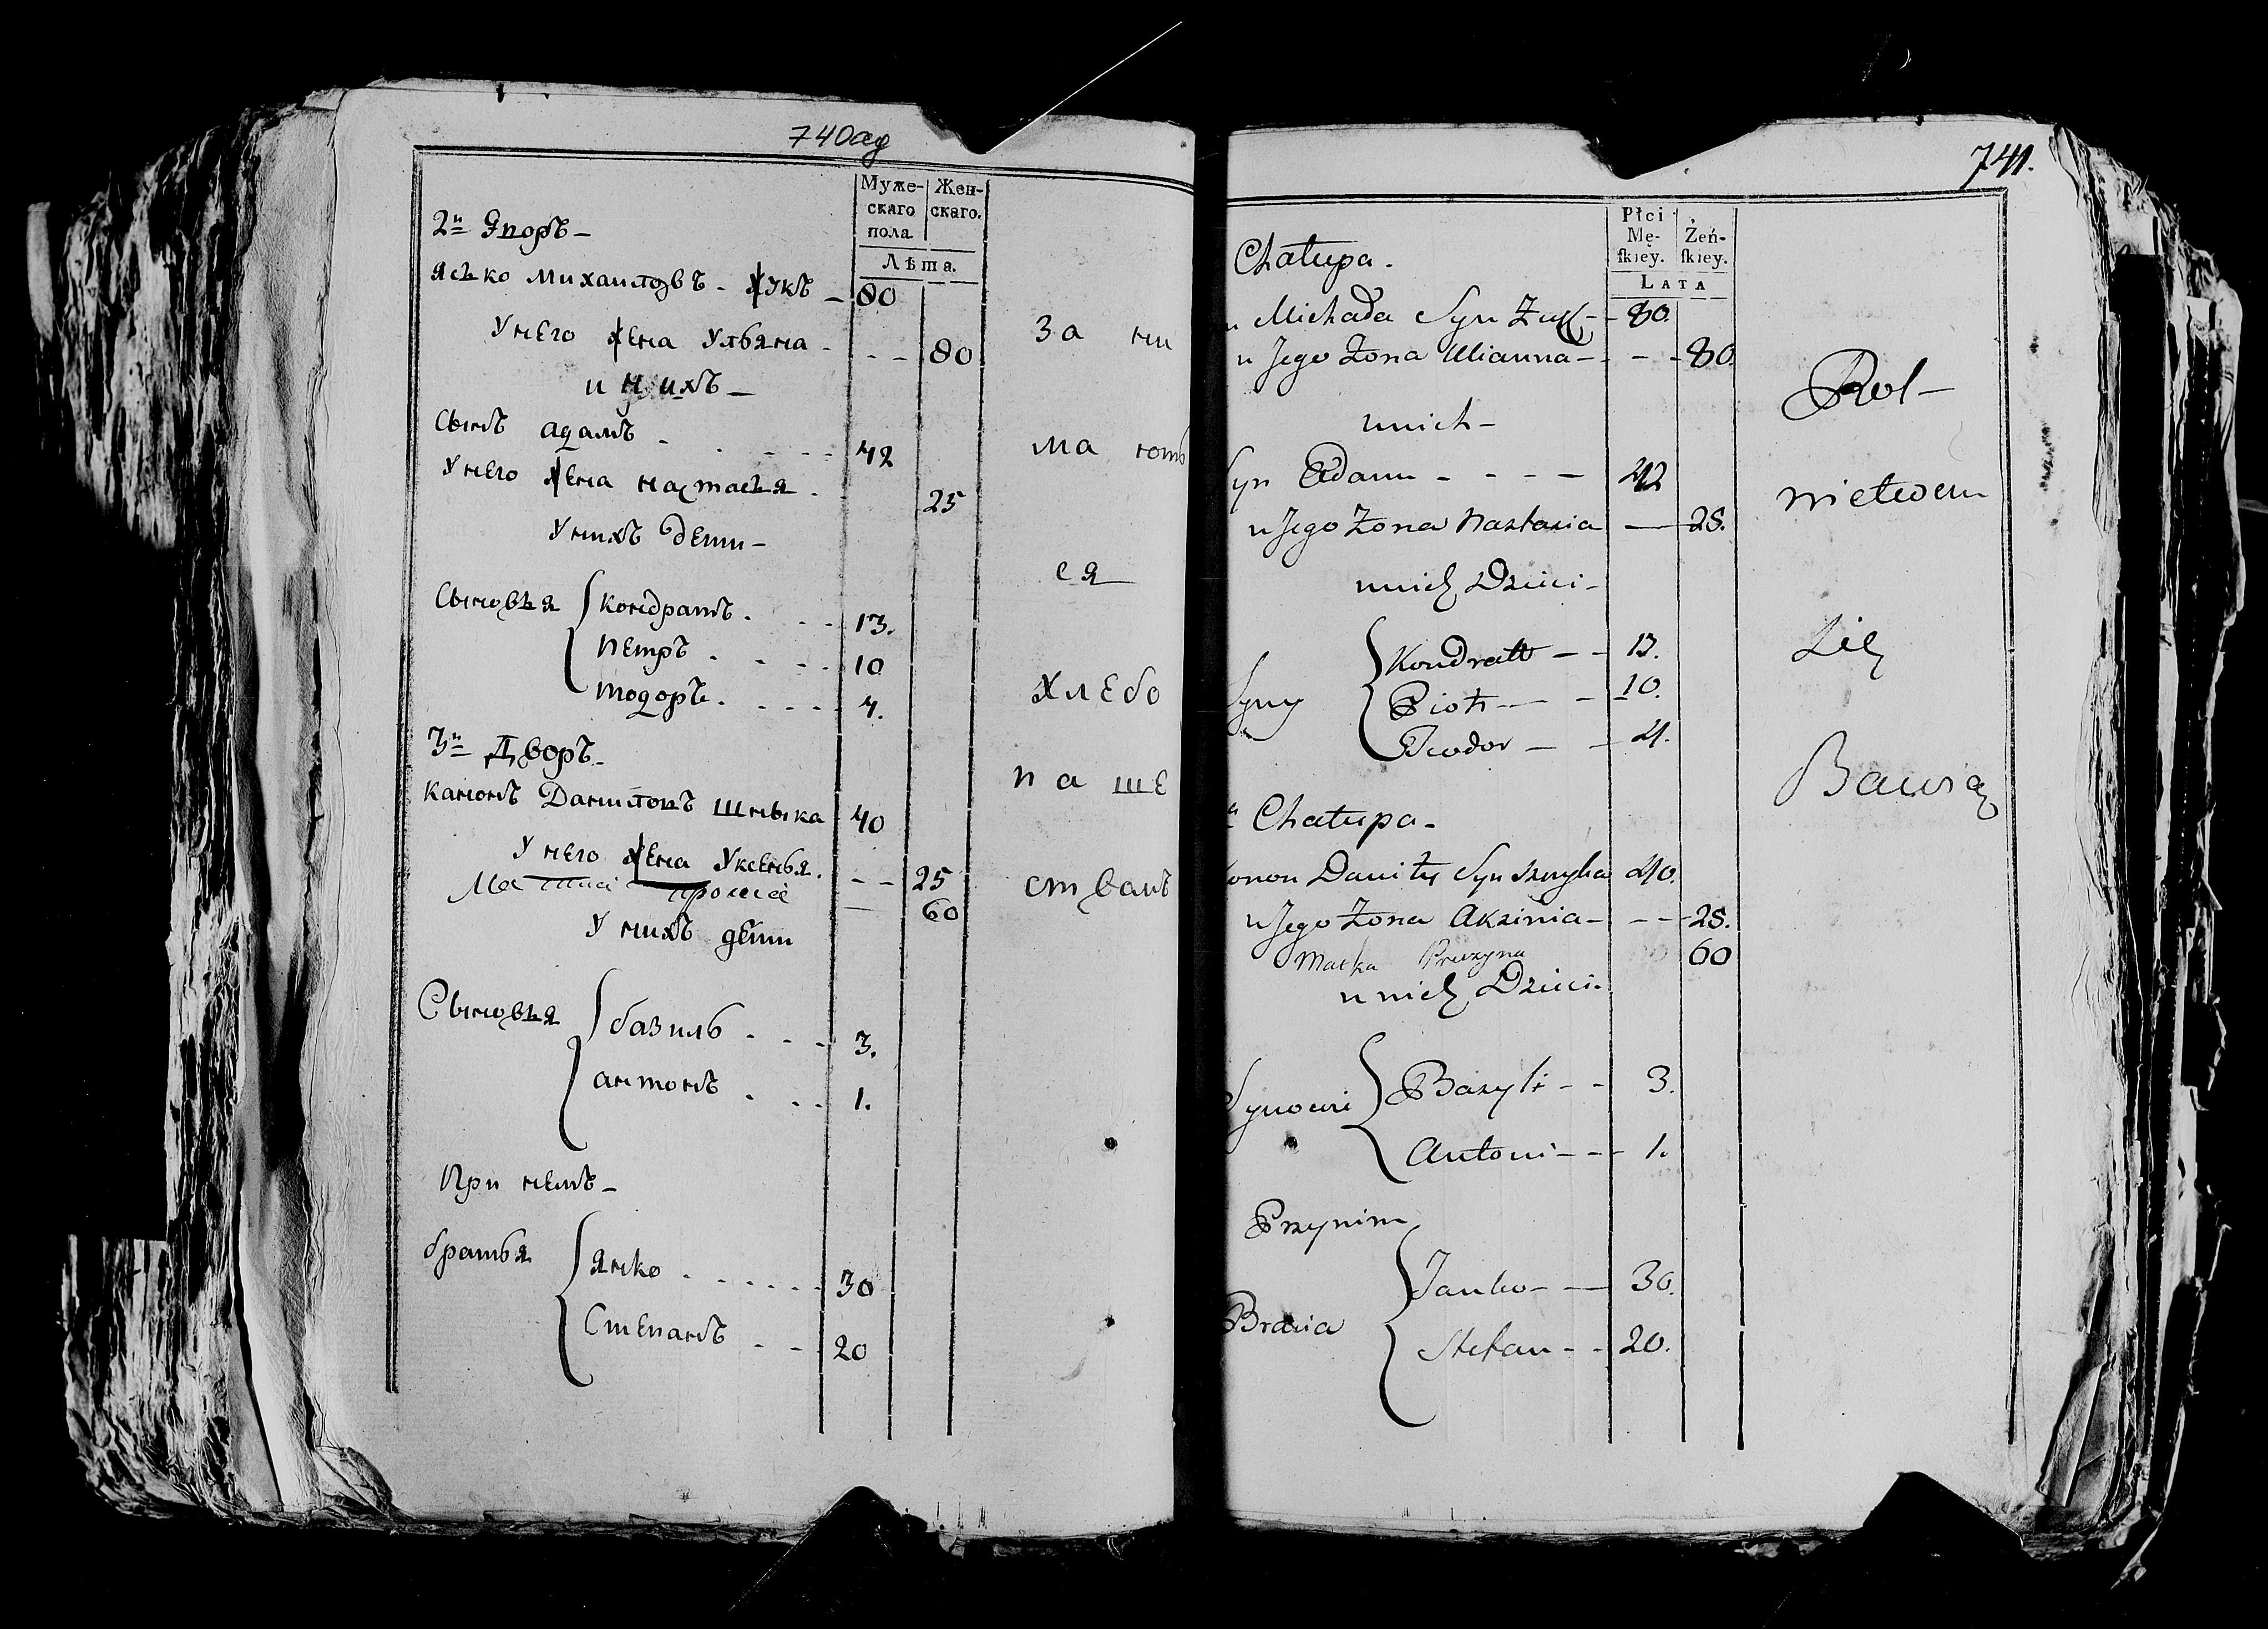 740 од
Муже-
скаго
пола
Жен-
скаго.
Лѣта.
2й Дворъ –
Ясько Михайловъ – Жукъ – 80
У него жена Ульяна – – – 80
и нихъ –
Сынъ Адамъ – – – – 42
У него жена Настасья – 25
У нихъ дети –
Сыновья Кондратъ – – – 13.
Петръ – – – 10
Тодоръ – – – 4.
3й Дворъ –
Данилов Шныка 40
У него жена Уксенья. – – 25
60
У нихъ дети
Сыновья базиль – – – 3.
антонъ – – – 1.
При немъ –
братья Янко – – – – 30
Степанъ – – 20
За ни
ма ють
ся
хлебо
па ше
ствамъ
741.
Płci
Mę-
ſkiey.
Żeń-
ſkiey.
LATA
Chałupa –
Michała Syn Żuk – – 80.
u Jego Żona Ulianna – – – 80.
unich –
Syn Adam – – – – 42
u Jego Żona Nastazia — 25.
unich Dzieci –
Syny Kondratt – – 13.
Piotr – – 10.
Teodor – – 4.
Chałupa –
Konon Daniły Syn Sznyka 40.
u Jego Żona Aksinia – – – 25.
Matka 60
u nich Dzieci.
Synowie Bazyli – – 3.
Antoni – – – 1.
Przynim
Bracia Janko – – 30.
Stefan – – 20.
Rol-
nictwem
Się
Bawią